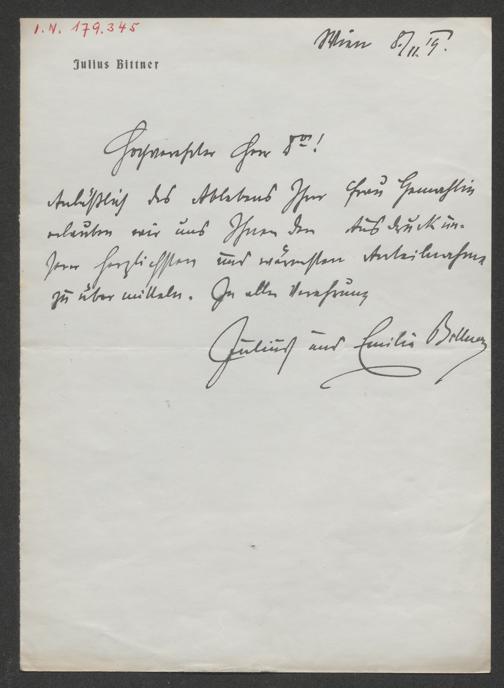 I.N. 179.345
Wien 8./11. 19.
Julius Bittner
Hochverehrter Herr Dr!
Anläßlich des Ablebens Ihrer Frau Gemahlin
erlauben wir uns Ihnen den Ausdruck un-
serer herzlichsten und wärmsten Anteilnahme
zu übermitteln. In aller Verehrung
Julius und Emilie Bittner